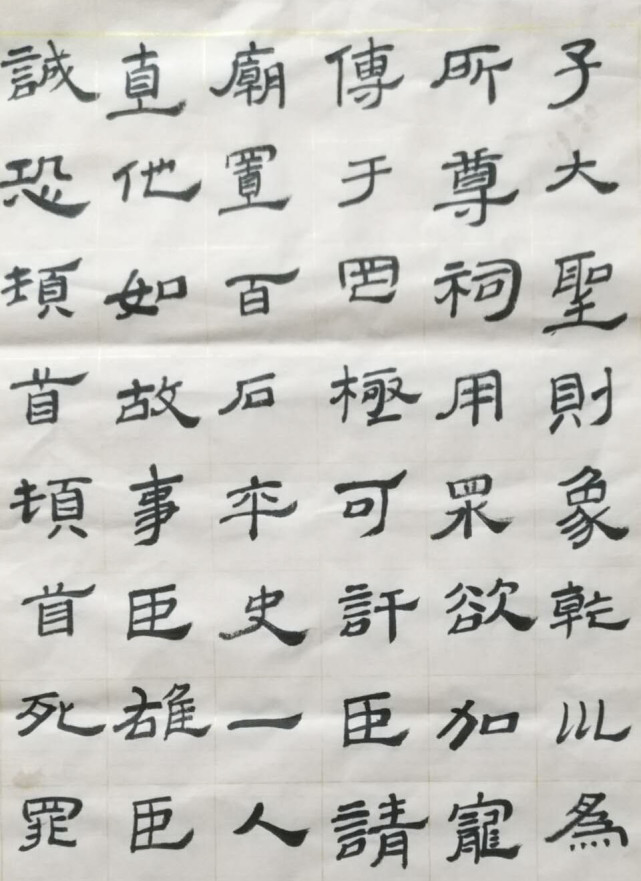 子大聖則象乾川為
所尊祠用眾欲加寵
傳于罔極可許臣請
廟置百石卒史一人
直他如故事臣雄臣
誠恐頓首頓首死罪